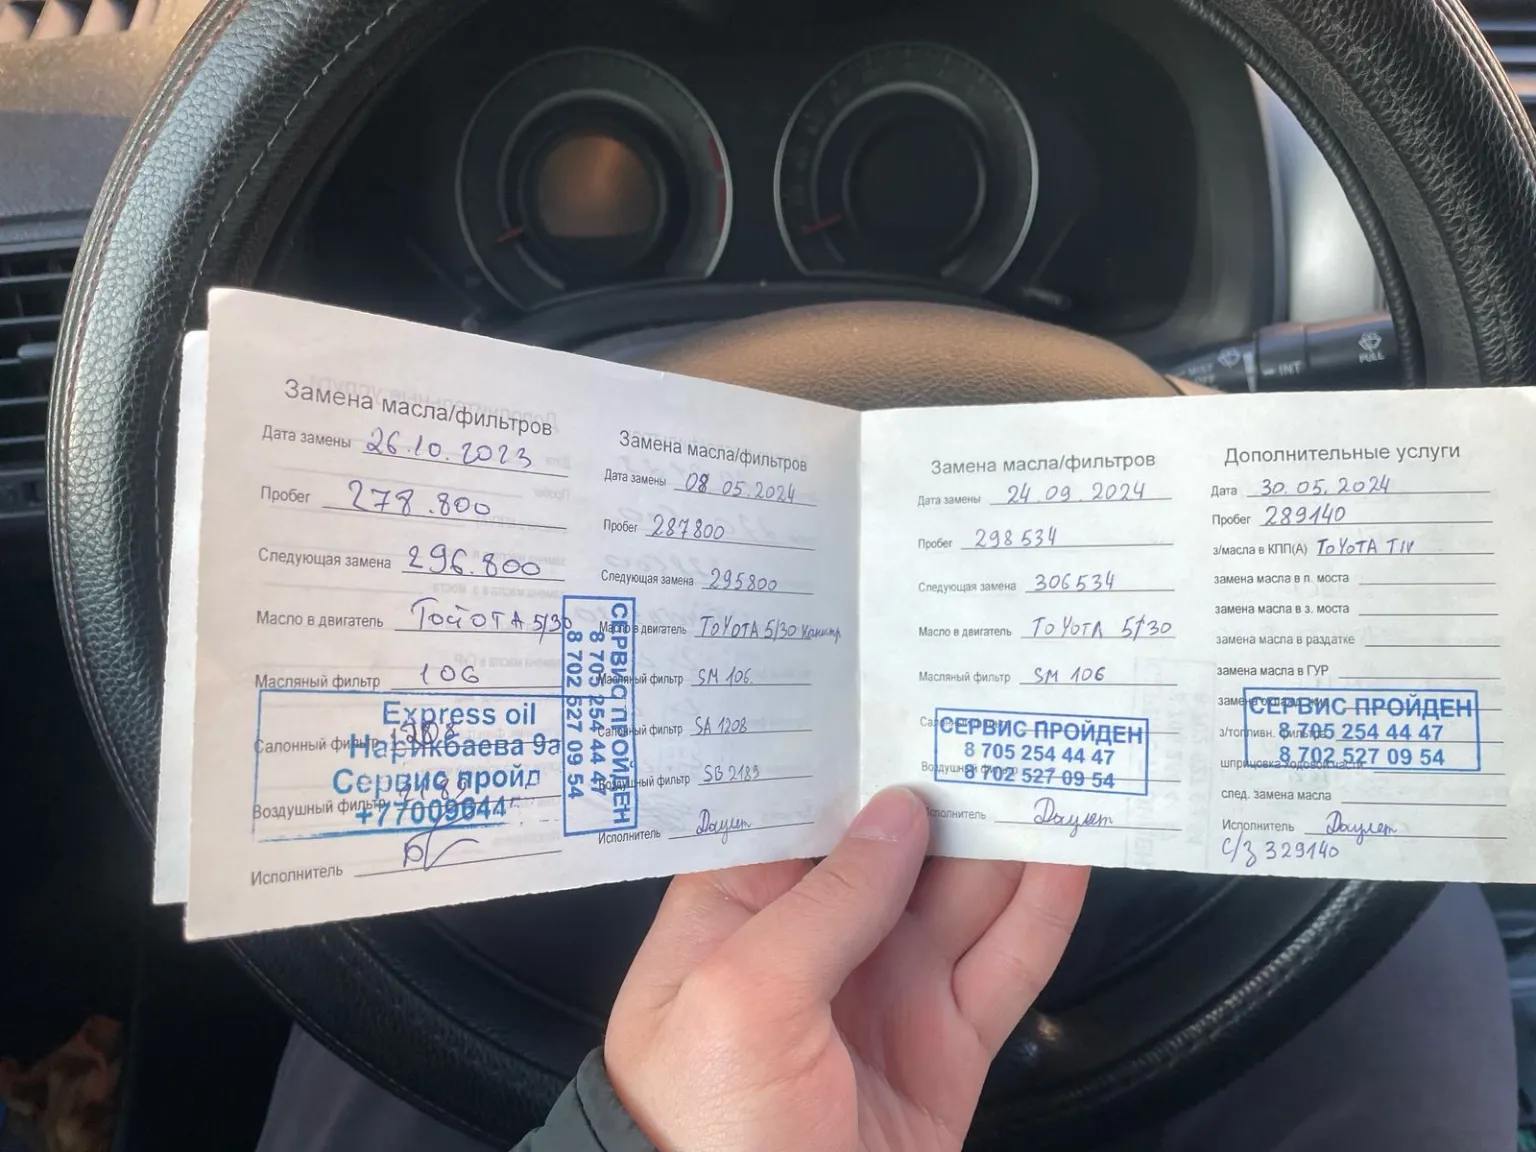 Замена масла/фильтров
Дата замены 26.10.2023
Пробег 278.800
Следующая замена 296.800
Масло в двигатель ТойотА 5/30
Масляный фильтр 106
Салонный фильтр
Воздушный фильтр
Express oil
Нарикбаева 9а
Сервис пройд
+77009644
Исполнитель
СЕРВИС ПРОЙДЕН
8 705 254 44 47
8 702 527 09 54
Замена масла/фильтров
Дата замены 08 05.2024
Пробег 287800
Следующая замена 295800
Масло в двигатель ToYoTA 5/30
Масляный фильтр SM 106.
Салонный фильтр SA 1208
Воздушный фильтр SB 2183
Исполнитель Даулет
Замена масла/фильтров
Дата замены 24.09.2024
Пробег 298534
Следующая замена 306534
Масло в двигатель ToYoTA 5/30
Масляный фильтр SM 106
СЕРВИС ПРОЙДЕН
8 705 254 44 47
8 702 527 09 54
Исполнитель Даулет
Дополнительные услуги
Дата 30.05.2024
Пробег 289140
з/масла в КПП(А) ToYoTA TIV
замена масла в п. моста
замена масла в з. моста
замена масла в раздатке
замена масла в ГУР
СЕРВИС ПРОЙДЕН
8 705 254 44 47
8 702 527 09 54
з/топливн. фильтра
шприцовка ходовой части
след. замена масла
Исполнитель Даулет
С/З 329140
MIST
INT
PULL